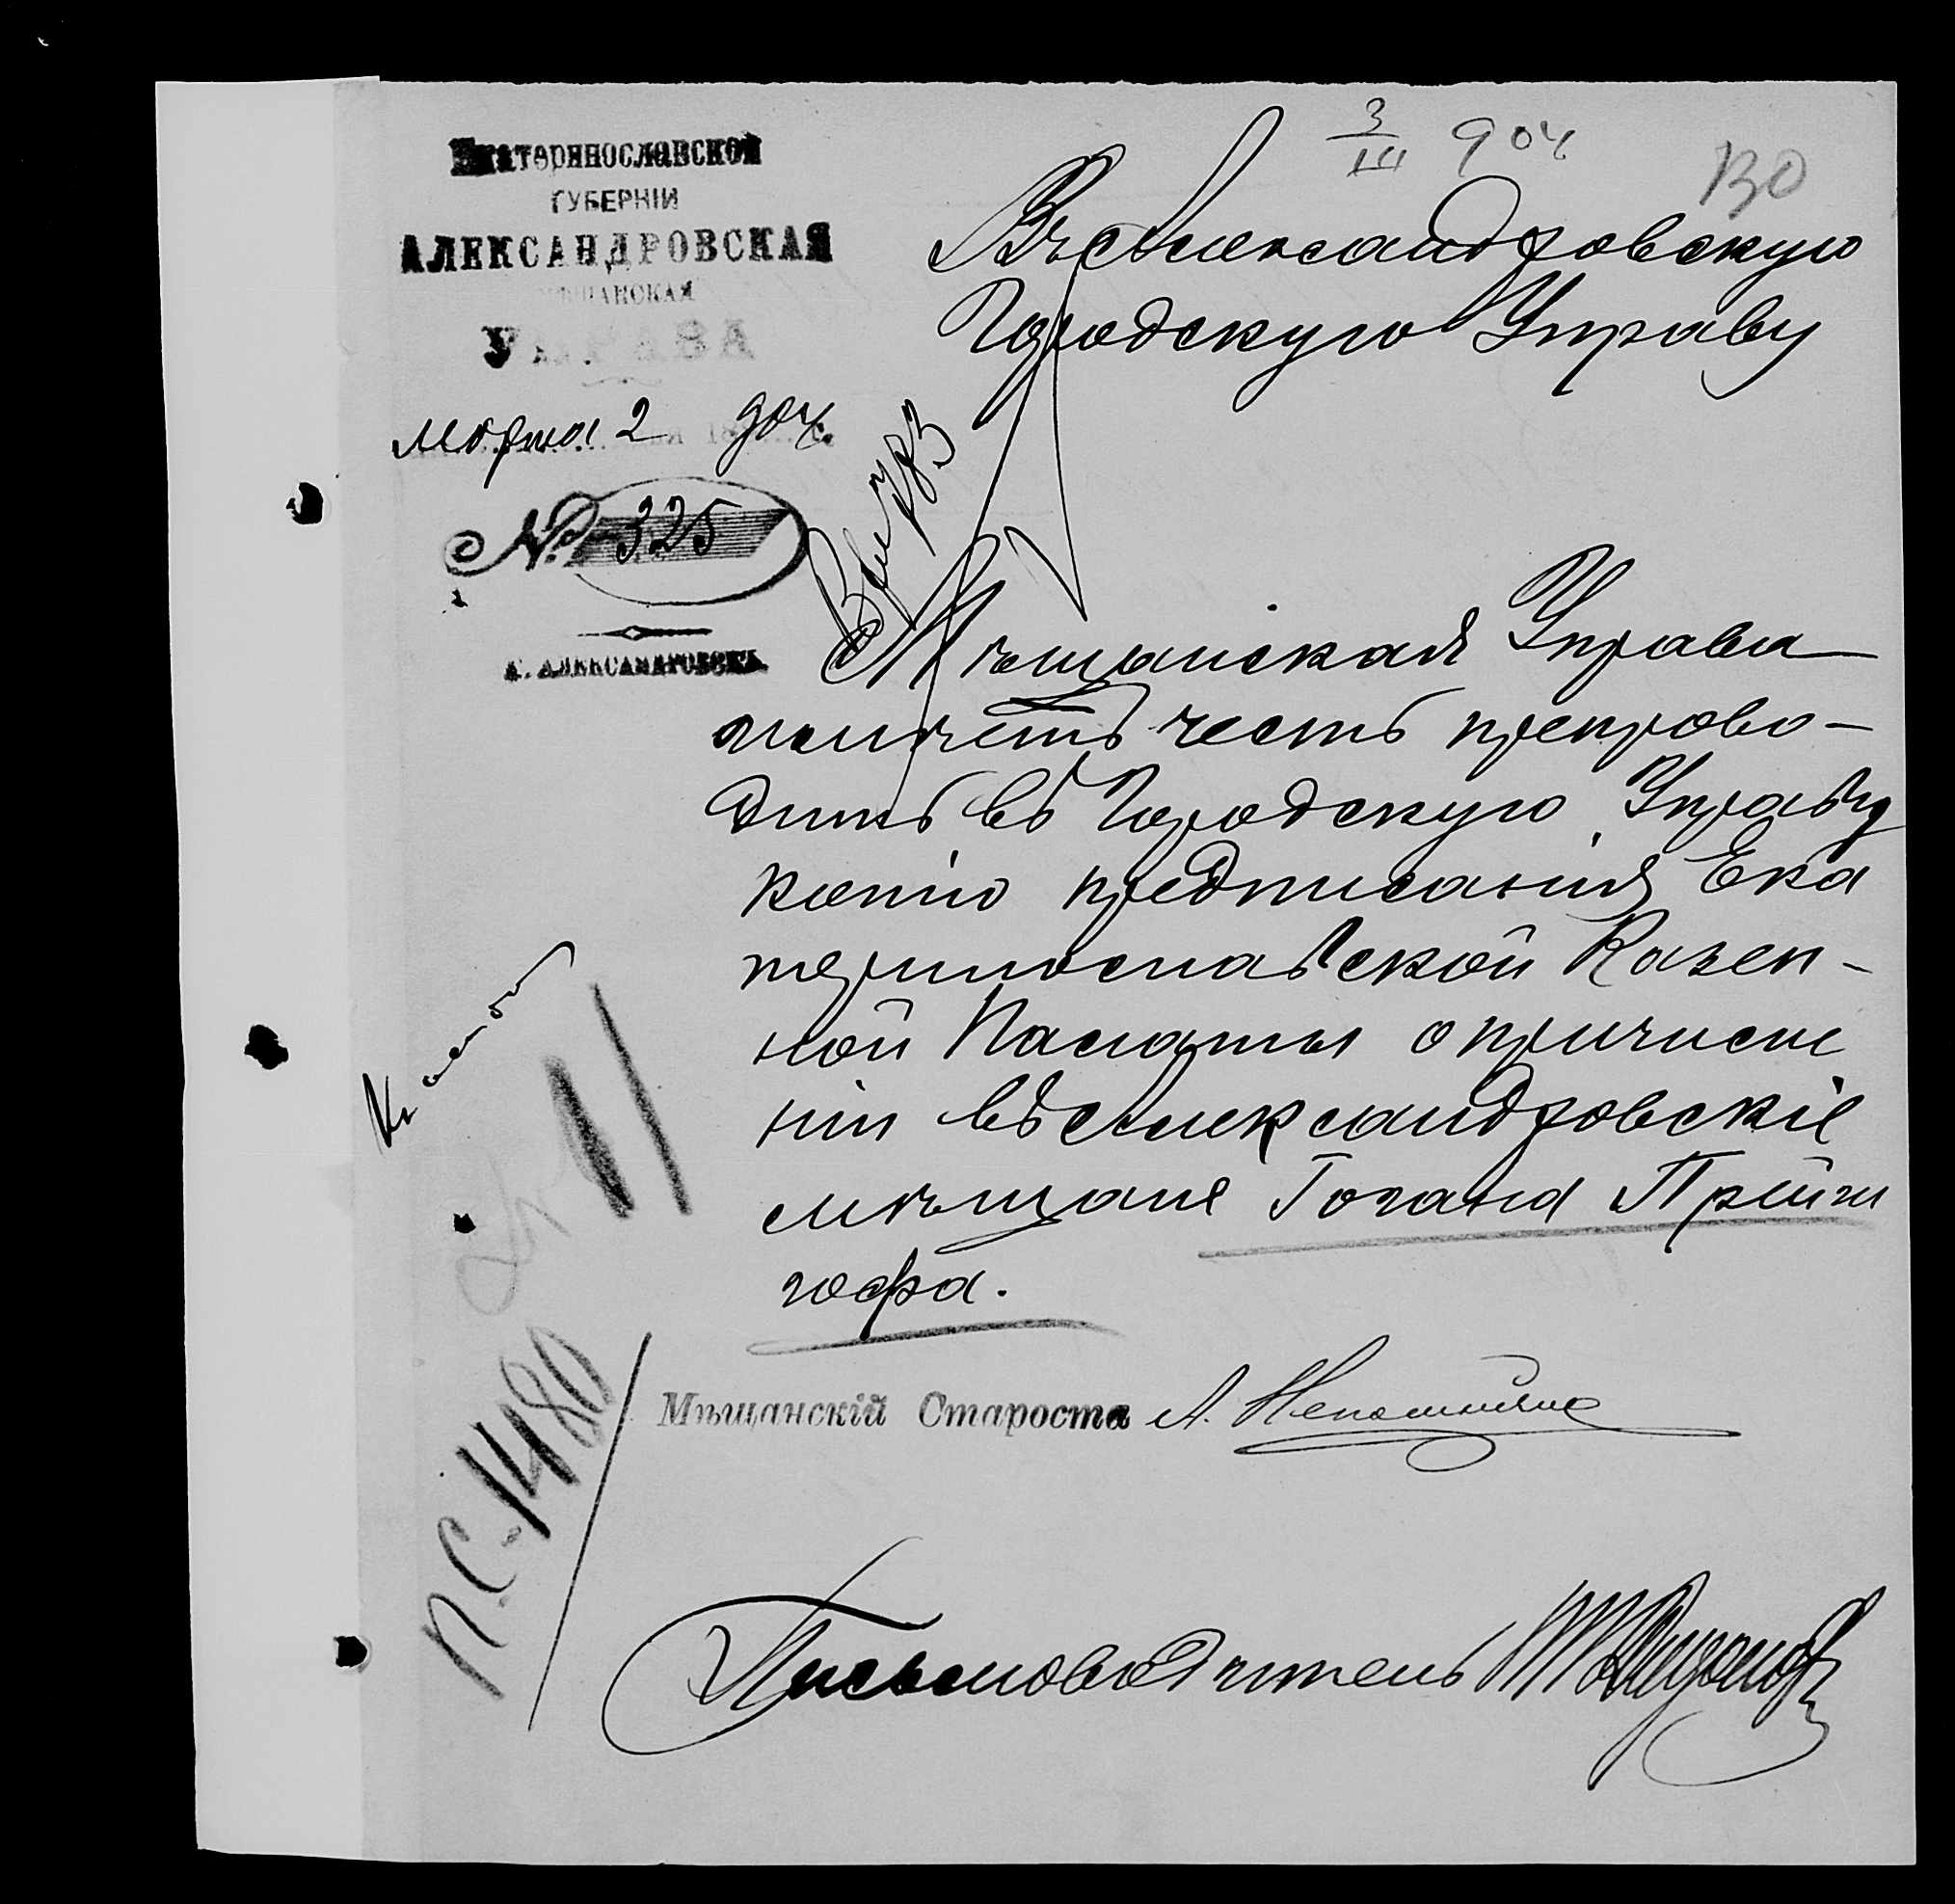 Екатеринославской
ГУБЕРНІИ
АЛЕКСАНДРОВСКАЯ
МѢЩАНСКАЯ
УПРАВА
Марта 2 904 г.
№ 325
г. АЛЕКСАНДРОВСКЪ
3/III 904
130
Въ Александровскую
Городскую Управу
783
Мѣщанская Управа
имѣетъ честь препрово-
дить въ Городскую Управу
копію предписанія Ека
теринославской Казен-
ной Палаты о причисле
ніи въ Александровскіе
мѣщане Гогана Прійз
гофа.
П.С. 1480
Мѣщанскій Староста А.
Письмоводитель